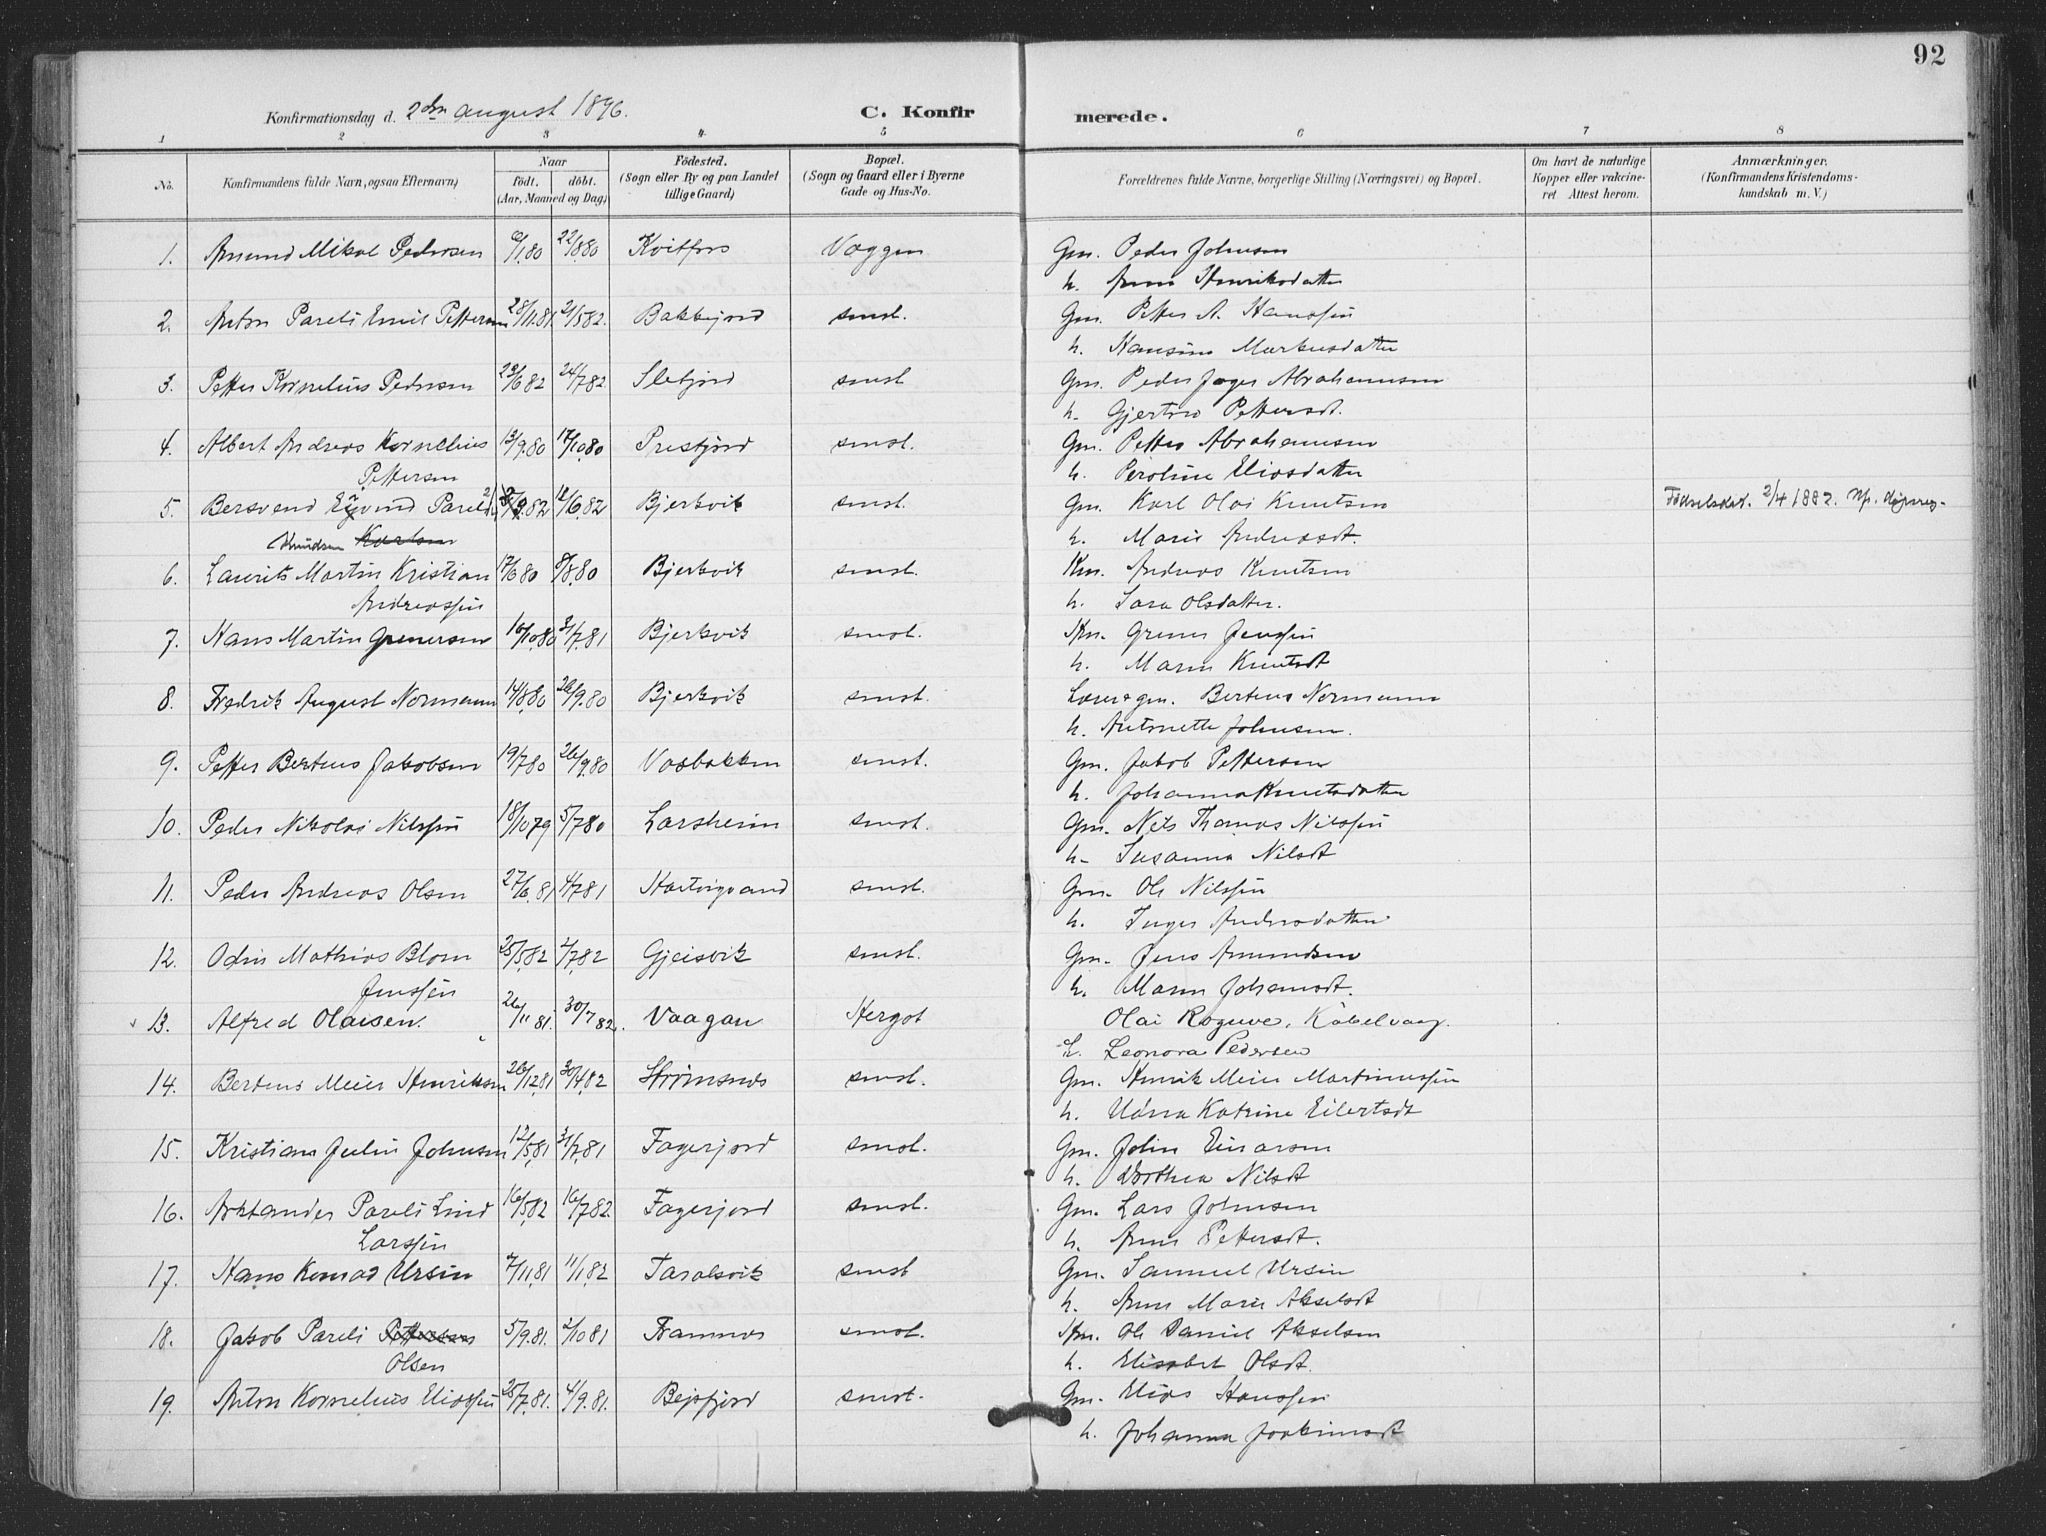 92
Konfirmationsdag d. 2den august 1896. C. Konfir merede.
1 2 3 4 5 6 7 8
No. Konfirmandens fulde Navn, ogsaa Efternavn) Naar födt. döbt. (Aar, Maaned og Dag) Födested. (Sogn eller By og paa Landet tillige Gaard) Bopæl. (Sogn og Gaard eller i Byerne Gade og Hus-No. Forældrenes fulde Navne, borgerlige Stilling (Næringsvei) og Bopæl. Om havt de naturlige Kopper eller vakcineret Attest herom. Anmærkninger. (Konfirmandens Kristendomskundskab m. V.)
1. Amund Mikal Pedersen 6/1.80 22/8.80 Kvitfors Væggen Gm. Peder Johnsen
h. Anna Henriksdatter
2. Anton Pareli Emil Pettersen 28/11.81 21/5.82. Bakkejord smst. Gm. Petter A. Hanssen
h. Hansine Markusdatter
3. Petter Kornelius Pedersen 23/6.82 24/7.82 Slefjord smst Gm. Peder Jager Abrahamsen
h. Gjertru Pettersdt.
4. Albert Andreas Kornelius 13/9.80 17/10.80 Prestjord smst. Gm. Petter Abrahamsen
Pettersen h. Peroline Eliasdatter
5. Bersvend Eivind Pareli 82 18/6.82 Bjerkvik smst. Gm. Karl Olai Knutsen Fødselsdat. 2/4 1882.
Knudsen Karlsen h. Marie Andreasdt.
6. Laurits Martin Kristian 17/6.80 8/8.80 Bjerkvik smst. Km. Andreas Knutsen
Andreassen h. Sara Olsdatter.
7. Hans Martin Grenersen 16/10.80 31/7.81 Bjerkvik smst. Km. Grener Jenssen
h. Maren Knutsdt
8. Fredrik August Normann 14/8.80 26/9.80 Bjerkvik smst. Lærer & gm. Berteus Normann
h. Antonette Johnsen.
9. Petter Berteus Jakobsen 19/7.80 26/9.80 Vasbakken smst. Gm. Jakob Pettersen
h. Johanna Knutsdatter
10. Peder Nikolai Nilssen 18/10.79 5/7.80 Larsheim smst. Gm. Nils Thomas Nilssen
h. Susanna Nilsdt
11. Peder Andreas Olsen 27/6.81 4/7.81 Hartvigvand smst. Gm. Ole Nilssen
h. Inger Andersdatter
12. Odin Mathias Blom 25/5.82 2/7.82 Gjeisvik smst. Gm. Jens Amundsen
Jenssen h. Maren Johansdt.
13. Alfred Olaisen. 26/11 81. 30/7 82. Vaagan Hergot Olai Roguve, Kabelvaag.
h. Leonora Pedersen
14. Berteus Meier Henriksen 26/12.81 30/4.82 Strømsnes smst. Gm. Henrik Meier Martinussen
h. Udna Katrine Eilertsdt
15. Kristian Julin Johnsen 12/5.81 31/7.81 Fagerjord smst. Gm. John Einarsen
h. Dorthea Nilsdt
16. Arktander Pareli Lind 16/5.82 16/7.82. Fagerjord smst. Gm. Lars Johnsen
Larssen h. Anne Pettersdt.
17. Hans Konrad Ursin 7/11.81 11/1.82 Taralsvik smst Gm. Samuel Ursin
h. Anne Marie Akselsdt
18. Jakob Pareli Pettersen 5/9.81. 2/10.81 Framnes smst. Km. Ole Daniel Akselsen
Olsen h. Elisabet Olsdt.
19. Anton Kornelius Eliassen 25/7.81. 4/9.81. Bejsfjord smst. Gm. Elias Hanssen
h. Johanna Joakimsdt